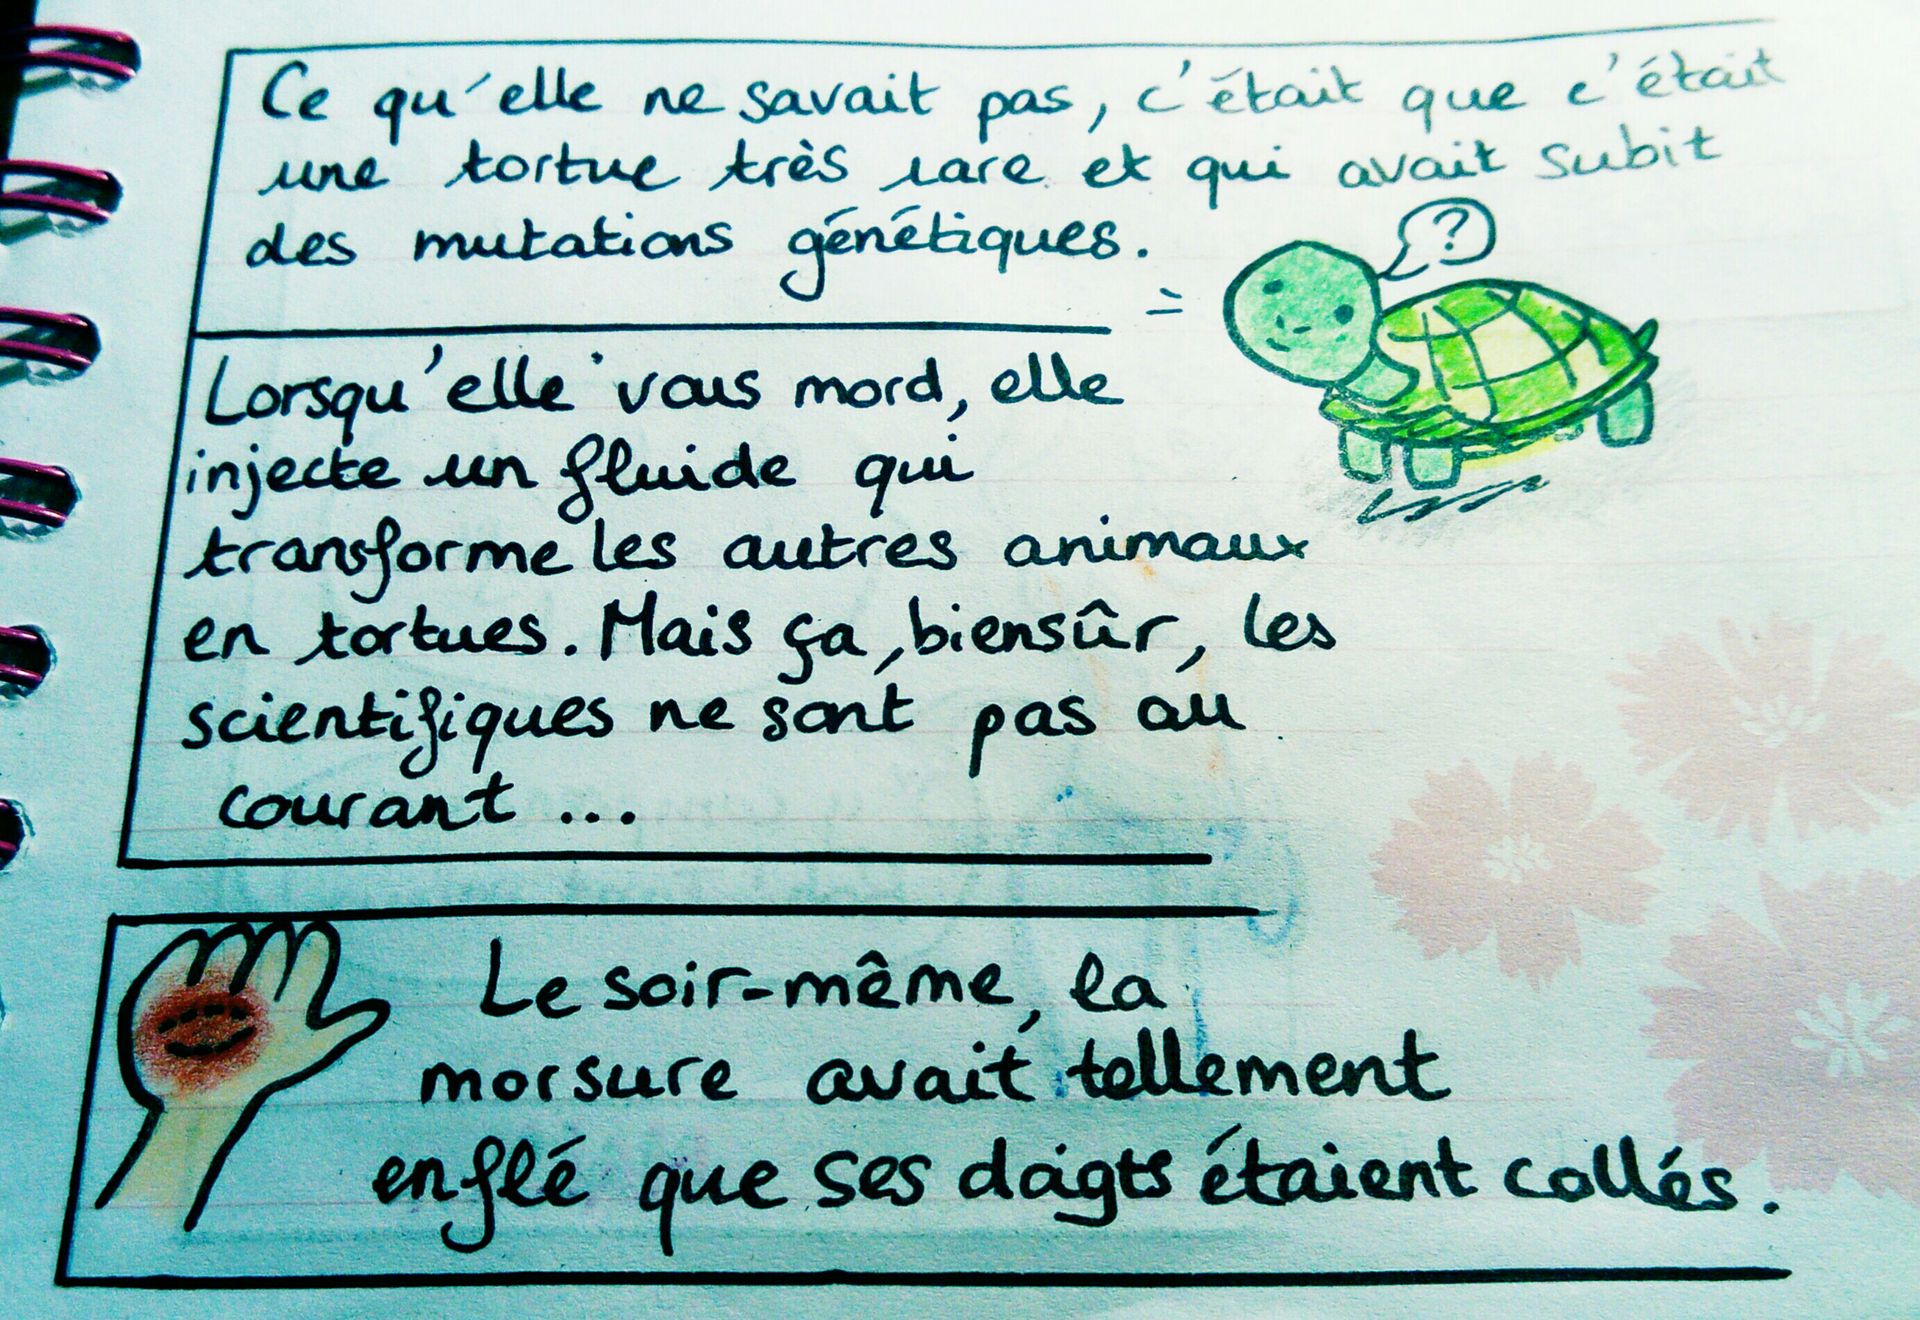 Ce qu'elle ne savait pas, c'était que c'était
une tortue très rare et qui avait subit
des mutations génétiques.
?
Lorsqu'elle vous mord, elle
injecte un fluide qui
transforme les autres animaux
en tortues. Mais ça, biensûr, les
scientifiques ne sont pas au
courant ...
Le soir-même, la
morsure avait tellement
enflé que ses doigts étaient collés.